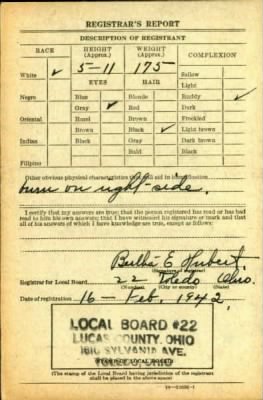 REGISTRAR'S REPORT
DESCRIPTION OF REGISTRANT
RACE HEIGHT (Approx.) WEIGHT (Approx.) COMPLEXION
White ✓ 5-11 175 Sallow
EYES HAIR Light
Negro Blue Blonde Ruddy ✓
Gray ✓ Red Dark
Oriental Hazel Brown Freckled
Brown Black ✓ Light brown
Indian Black Gray Dark brown
Bald Black
Filipino
Other obvious physical characteristics that will aid in identification
burn on right side.
I certify that my answers are true; that the person registered has read or has had
read to him his own answers; that I have witnessed his signature or mark and that
all of his answers of which I have knowledge are true, except as follows:
Bertha E Hubert
(Signature of registrar)
Registrar for Local Board 22 Toledo Ohio.
(Number) (City or county) (State)
Date of registration 16 - Feb. 1942
LOCAL BOARD #22
LUCAS COUNTY, OHIO
1810 SYLVANIA AVE.
TOLEDO, OHIO
(The stamp of the Local Board having jurisdiction of the registrant
shall be placed in the above space.)